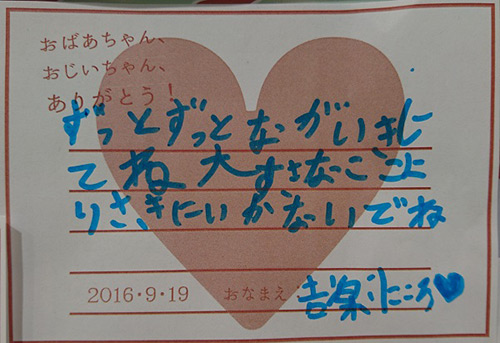 おばあちゃん、
おじいちゃん、
ありがとう!
ずっとずっとながいきし
てね大すきなこころよ
りさきにいかないでね
2016・9・19 おなまえ 吉泉こころ♥